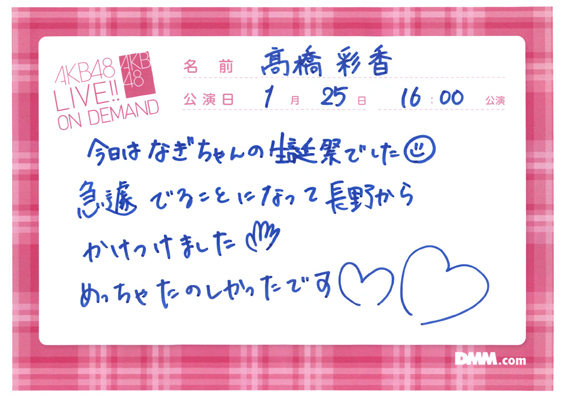 AKB48
LIVE!!
ON DEMAND
AKB
48
名前 髙橋 彩香
公演日 1月 25日 16:00 公演
今日はなぎちゃんの生誕祭でした
急遽 でることになって長野から
かけつけました
めっちゃたのしかったです
DMM.com